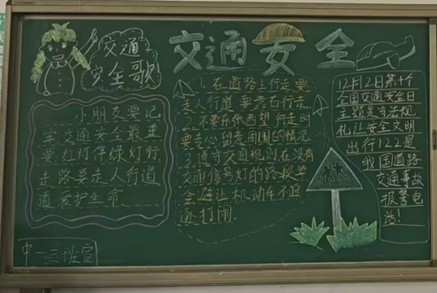 交通
安全歌
交通安全
小朋友要记
牢交通安全最重
要红灯停绿灯行
走路要走人行道
道爱护生命
1.在道路上行走要
走人行道 要靠右行走
2.不要东张西望 行走时
要专心 留意周围的情况
3.遵守交通规则 在没有
交通信号灯的路段
会避让机动车不追
逐打闹
12月2日第十个
全国交通安全日
主题是守法规
礼让安全文明
出行122是
我国道路
交通事故
报警电
话!
中一三班宣